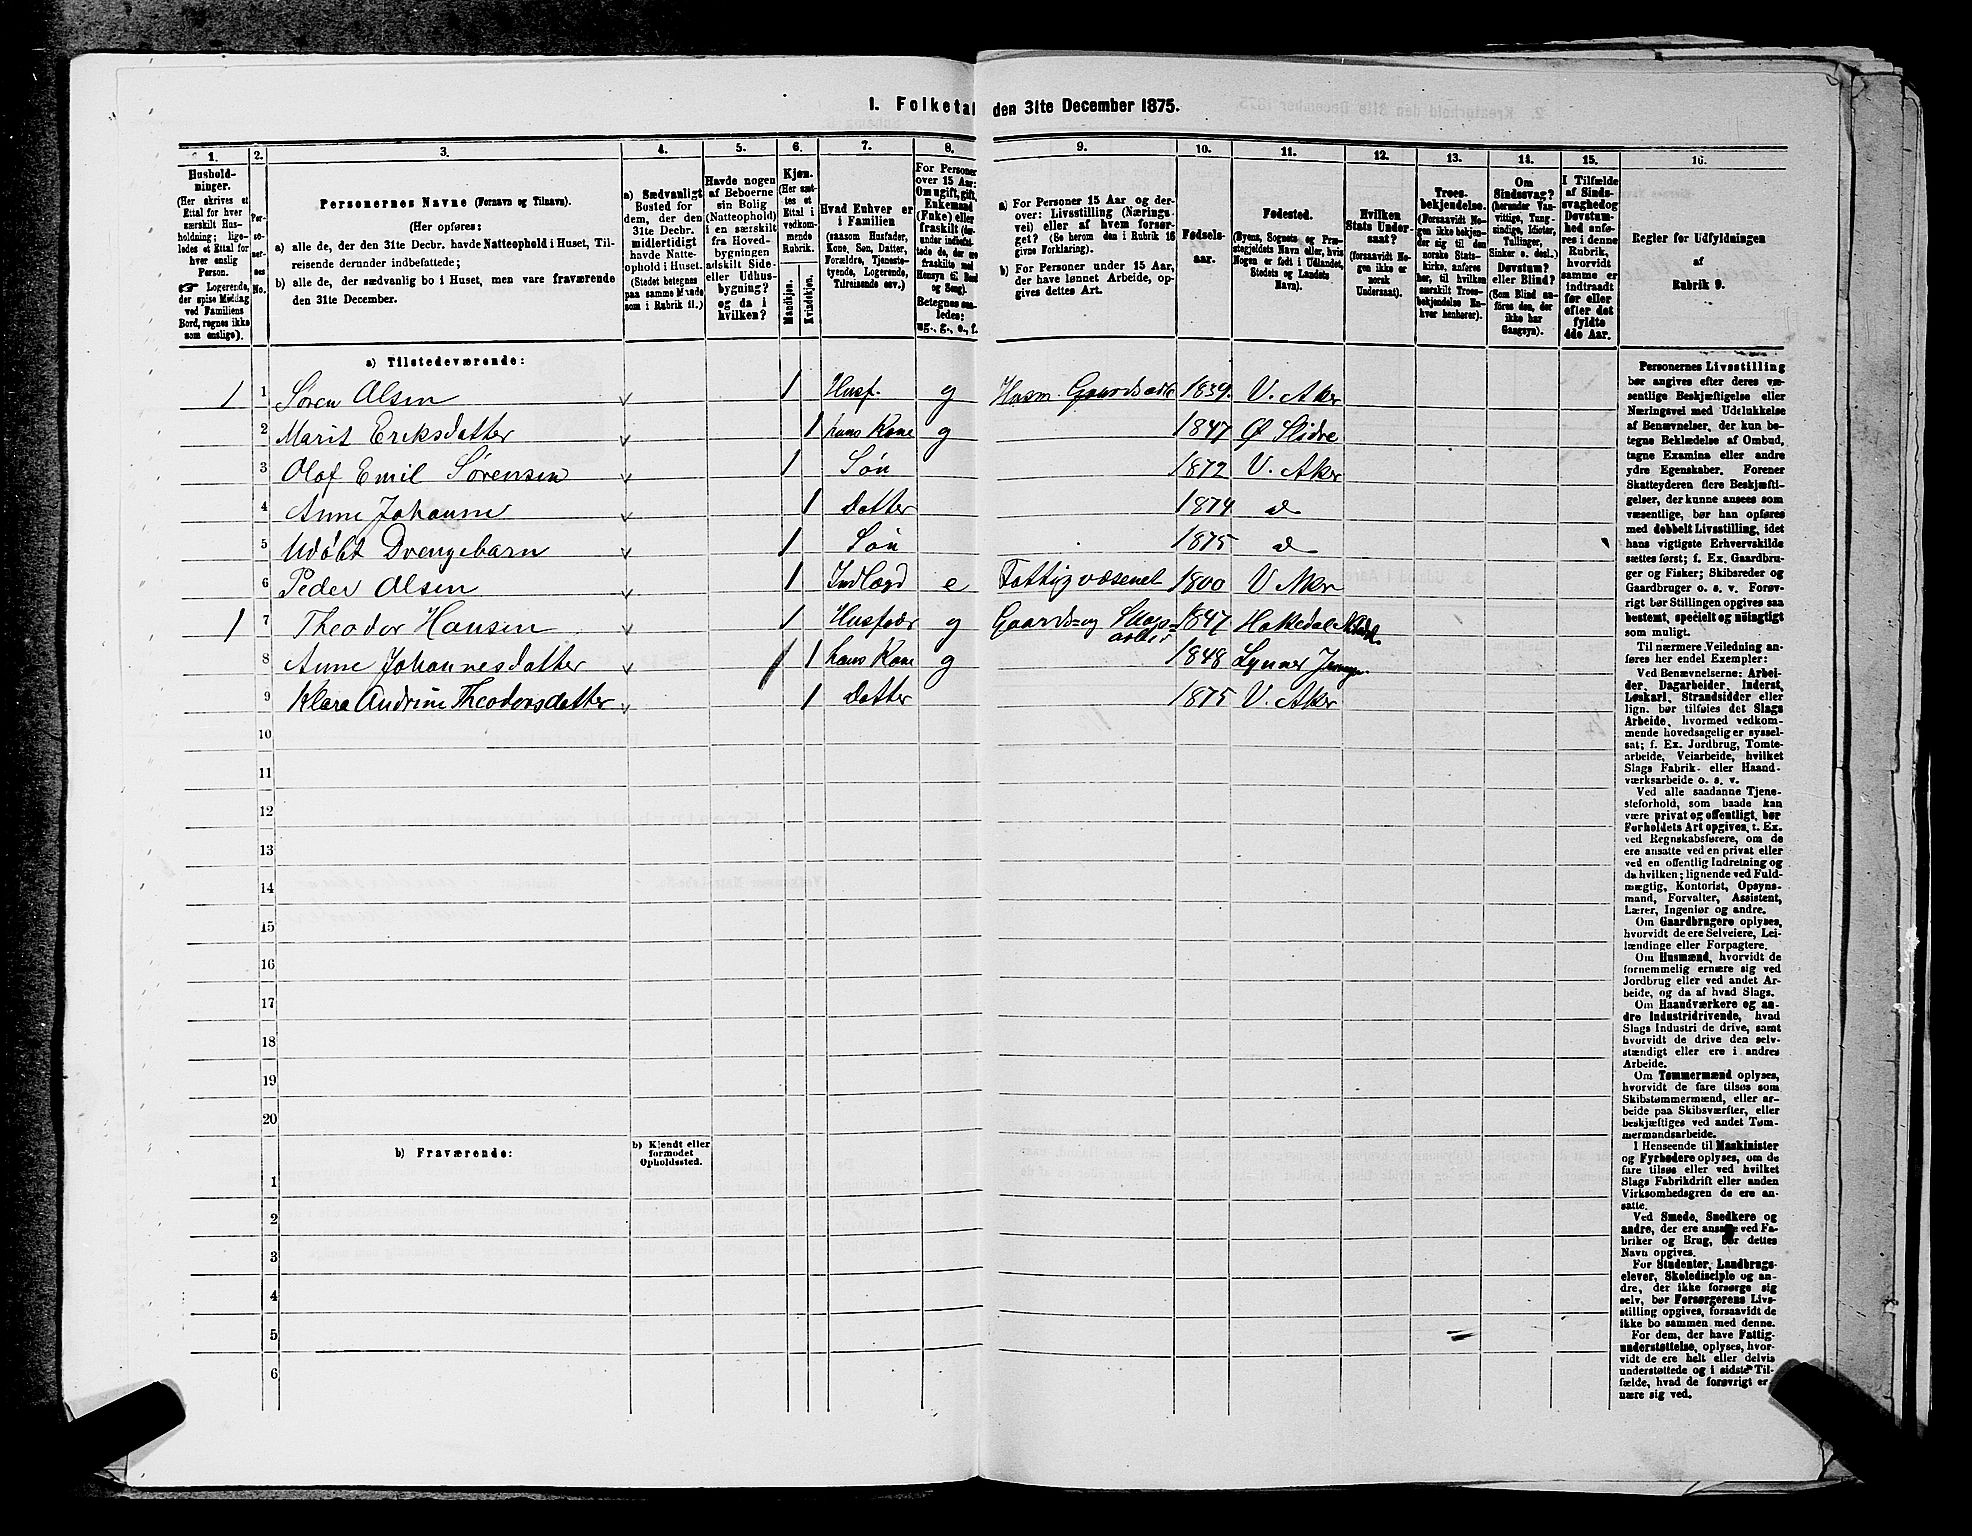 1. Folketal den 31te December 1875.
1. 2. 3. 4. 5. 6. 7. 8. 9. 10. 11. 12. 13. 14. 15. 16.
Hushold-
ninger.
(Her skrives et
Ettal for hver
særskilt Hus-
holdning; lige-
ledes et Ettal for
hver enslig
Person.
☛ Logerende,
der spise Middag
ved Familiens
Bord, regnes ikke
som enslige).
Per-
so-
ner-
nes
No.
Personernes Navne (Fornavn og Tilnavn).
(Her opføres:
a) alle de, der den 31te Decbr. havde Natteophold i Huset, Til-
reisende derunder indbefattede;
b) alle de, der sædvanlig bo i Huset, men vare fraværende
den 31te December.
a) Sædvanligt
Bosted for
dem, der den
31te Decbr.
midlertidigt
havde Natte-
ophold i Huset.
(Stedet betegnes
paa samme Maade
som i Rubrik 11.)
Havde nogen
af Beboerne
sin Bolig
(Natteophold)
i en særskilt
fra Hoved-
bygningen
adskilt Side-
eller Udhus-
bygning?
og da i
hvilken?
Kjøn.
(Her sæt-
tes et
Ettal i
vedkom-
mende
Rubrik.
Mandkjøn.
Kvindekjøn.
Hvad Enhver er
i Familien
(saasom Husfader,
Kone, Søn, Datter,
Forældre, Tjeneste-
tyende, Logerende,
Tilreisende osv.)
For Personer
over 15 Aar:
Om ugift, gift,
Enkemand
(Enke) eller
fraskilt
Betegnes saa-
ledes:
ug., g., e., f.
a) For Personer 15 Aar og der-
over: Livsstilling (Nærings-
vei) eller af hvem forsør-
get? (Se herom den i Rubrik 16
givne Forklaring).
b) For Personer under 15 Aar,
der have lønnet Arbeide, op-
gives dettes Art.
Fødsels-
aar.
Fødested.
(Byens, Sognets og Præ-
stegjeldets Navn eller, hvis
Nogen er født i Udlandet,
Stedets og Landets
Navn).
Hvilken
Stats Under-
saat?
(forsaavidt No-
gen ikke er
norsk
Undersaat).
Troes-
bekjendelse.
(Forsaavidt No-
gen ikke bekjen-
der sig til den
norske Stats-
kirke, anføres
her, til hvilken
særskilt Troes-
bekjendelse En-
hver henhører).
Om
Sindssvag?
(herunder Van-
vittige, Tung-
sindige, Idioter,
Tullinger,
Sinker o. desl.)
Døvstum?
eller Blind?
(Som Blind an-
føres den, der
ikke har
Gangsyn).
I Tilfælde
af Sinds-
svaghed og
Døvstum-
hed anfø-
res i denne
Rubrik,
hvorvidt
samme er
indtraadt
før eller
efter det
fyldte
4de Aar.
Regler for Udfyldningen
af
Rubrik 9.
a) Tilstedeværende:
1 1 Søren Olsen 1 Husf. g Husm. Gaardsarb 1839. V. Aker
2 Marit Eriksdatter 1 hans Kone g 1847 Ø Slidre
3 Olaf Emil Sørensen 1 Søn 1872 V. Aker
4 Anne Johanne 1 Datter 1874 d
5 Udøbt Drengebarn 1 Søn 1875 d
6 Peder Olsen 1 Indlægd e Fattigvæsenet 1800 V Aker
1 7 Theodor Hansen 1 Husfader g Gaards- og Skogs- arbeid 1847
8 Anne Johannesdatter 1 hans Kone g 1848
9 Klara Andrine Theodorsdatter 1 Datter 1875 V. Aker
10
11
12
13
14
15
16
17
18
19
20
b) Fraværende:
b) Kjendt eller
formodet
Opholdssted.
1
2
3
4
5
6
Personernes Livsstilling
bør angives efter deres væ-
sentlige Beskjæftigelse eller
Næringsvei med Udelukkelse
af Benævnelser, der kun be-
tegne Beklædelse af Ombud,
tagne Examina eller andre
ydre Egenskaber. Forener
Skatteyderen flere Beskjæfti-
gelser, der kunne ansees som
væsentlige, bør han opføres
med dobbelt Livsstilling, idet
hans vigtigste Erhvervskilde
sættes først; f. Ex. Gaardbru-
ger og Fisker; Skibsreder og
Gaardbruger o. s. v. Forøv-
rigt bør Stillingen opgives saa
bestemt, specielt og nøiagtigt
som muligt.
Til nærmere Veiledning an-
føres her endel Exempler:
Ved Benævnelserne: Arbei-
der, Dagarbeider, Inderst,
Løskarl, Strandsidder eller
lign. bør tilføies det Slags
Arbeide, hvormed vedkom-
mende hovedsagelig er syssel-
sat; f. Ex. Jordbrug, Tomte-
arbeide, Veiarbeide, hvilket
Slags Fabrik- eller Haand-
værksarbeide o. s. v.
Ved alle saadanne Tjene-
steforhold, som baade kan
være privat og offentligt, bør
Forholdets Art opgives, t. Ex.
ved Regnskabsførere, om de
ere ansatte ved en privat eller
ved en offentlig Indretning og
da hvilken; lignende ved Fuld-
mægtig, Kontorist, Opsyns-
mand, Forvalter, Assistent,
Lærer, Ingeniør og andre.
Om Gaardbrugere oplyses,
hvorvidt de ere Selveiere, Lei-
lændinge eller Forpagtere.
Om Husmænd, hvorvidt de
fornemmelig ernære sig ved
Jordbrug eller ved andet Ar-
beide, og da af hvad Slags.
Om Haandværkere og an-
dre Industridrivende, hvad
Slags Industri de drive, samt
hvorvidt de drive den selv-
stændigt eller ere i andres
Arbeide.
Om Tømmermænd oplyses,
hvorvidt de fare tilsøs som
Skibstømmermænd, eller ar-
beide paa Skibsværfter, eller
beskjæftiges ved andet Tøm-
mermandsarbeide.
I Henseende til Maskinister
og Fyrbødere oplyses, om de
fare tilsøs eller ved hvilket
Slags Fabrikdrift eller anden
Virksomhedsgren de ere an-
satte.
Ved Smede, Snedkere og
andre, der ere ansatte ved Fa-
briker og Brug, bør dettes
Navn opgives.
For Studenter, Landbrugs-
elever, Skoledisciple og an-
dre, der ikke forsørge sig
selv, bør Forsørgerens Livs-
stilling opgives, forsaavidt de
ikke bo sammen med denne.
For dem, der have Fattig-
understøttelse, oplyses, hvor-
vidt de ere helt eller delvis
understøttede og i sidste Til-
fælde, hvad de forøvrigt er-
nære sig ved.